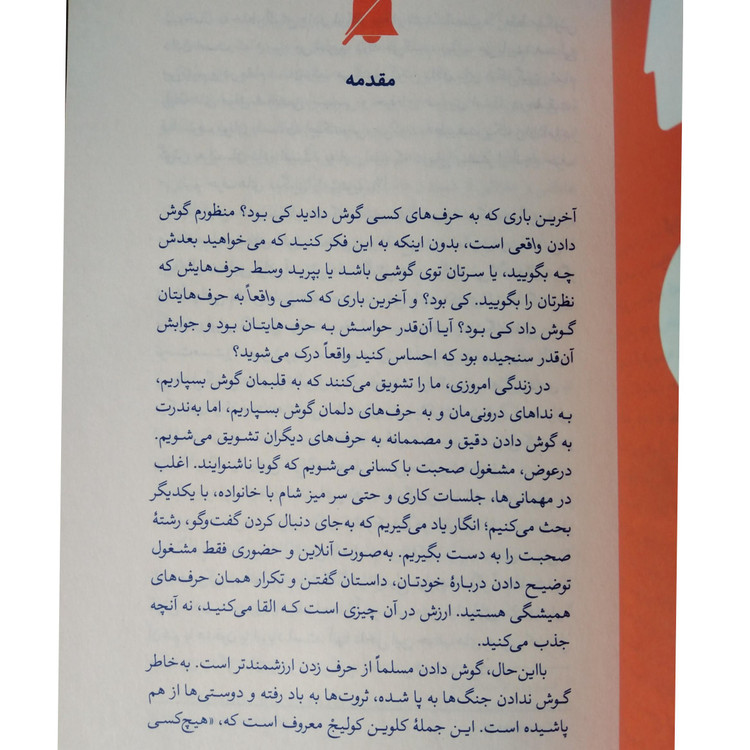 مقدمه
آخرین باری که به حرف‌های کسی گوش دادید کی بود؟ منظورم گوش
دادن واقعی است، بدون اینکه به این فکر کنید که می‌خواهید بعدش
چه بگویید، یا سرتان توی گوشی باشد یا بپرید وسط حرف‌هایش که
نظرتان را بگویید. کی بود؟ و آخرین باری که کسی واقعاً به حرف‌هایتان
گوش داد کی بود؟ آیا آن‌قدر حواسش به حرف‌هایتان بود و جوابش
آن‌قدر سنجیده بود که احساس کنید واقعاً درک می‌شوید؟
در زندگی امروزی، ما را تشویق می‌کنند که به قلبمان گوش بسپاریم،
به نداهای درونی‌مان و به حرف‌های دلمان گوش بسپاریم، اما به‌ندرت
به گوش دادن دقیق و مصممانه به حرف‌های دیگران تشویق می‌شویم.
درعوض، مشغول صحبت با کسانی می‌شویم که گویا ناشنوایند. اغلب
در مهمانی‌ها، جلسات کاری و حتی سر میز شام با خانواده، با یکدیگر
بحث می‌کنیم؛ انگار یاد می‌گیریم که به‌جای دنبال کردن گفت‌وگو، رشتهٔ
صحبت را به دست بگیریم. به‌صورت آنلاین و حضوری فقط مشغول
توضیح دادن دربارهٔ خودتان، داستان گفتن و تکرار همان حرف‌های
همیشگی هستید. ارزش در آن چیزی است که القا می‌کنید، نه آنچه
جذب می‌کنید.
بااین‌حال، گوش دادن مسلماً از حرف زدن ارزشمندتر است. به‌خاطر
گوش ندادن جنگ‌ها به پا شده، ثروت‌ها به باد رفته و دوستی‌ها از هم
پاشیده است. این جملهٔ کلوین کولیج معروف است که، «هیچ‌کسی